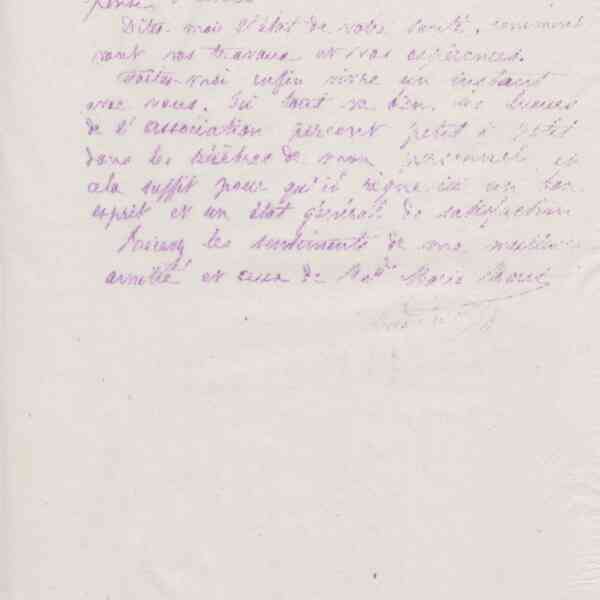 Dites-moi l'état de votre santé, comment
vont vos travaux et vos espérances.
Faites-moi enfin vivre un instant
avec vous. Ici tout va bien, les lueurs
de l'association percent petit à petit
dans les ténèbres de mon personnel et
cela suffit pour qu'il règne ici un bon
esprit et un état général de satisfaction
Recevez les sentiments de ma meilleure
amitié et ceux de Marie